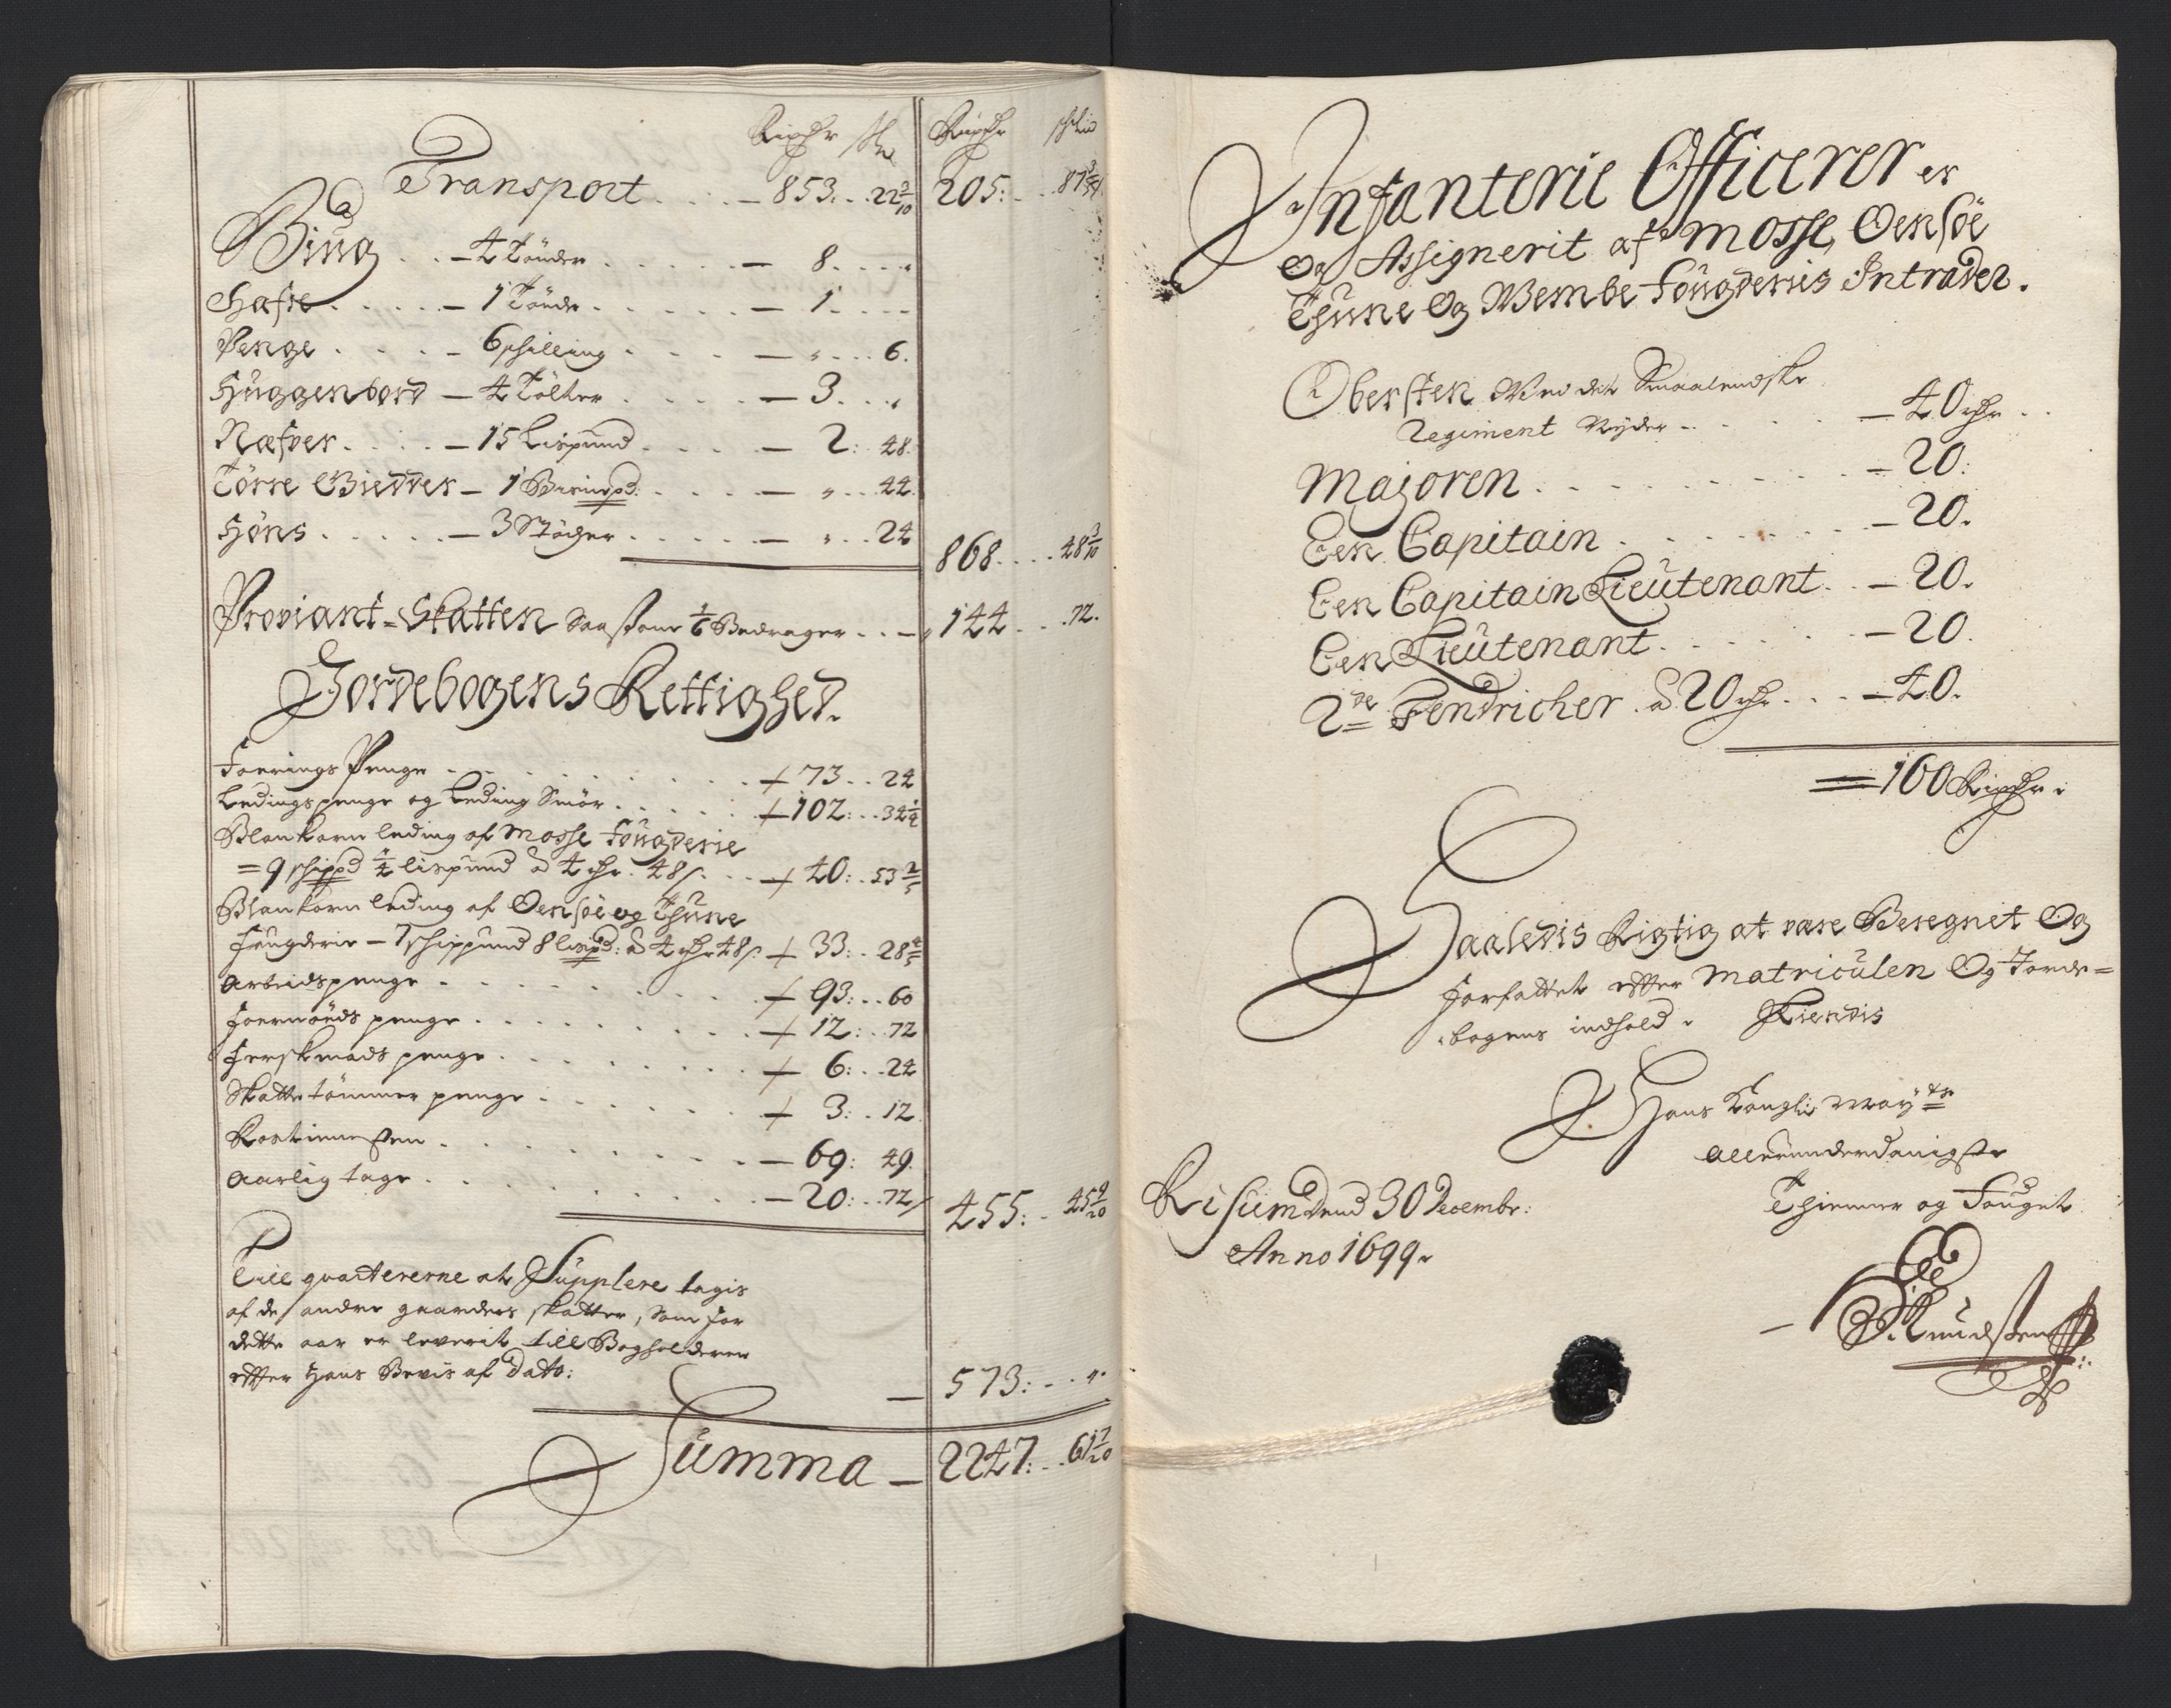 Rixdr Sk Rixdr schill
Transport - 853. 22 9/10 205:
Biug - 4 Tönder - 8.
Hafre - 1 Tönde - 1.
Penge - 6 schilling - " 6.
Huggenbord - 4 Tölter - 3.
Næfver - 15 Lispund - 2: 48.
Törre Giedder - 1 Bismrpd: - " 44.
Höns - 3 Støcher - " 24
868. 48 3/10
Proviant-Skatten Saasom 1/6 Bedrager - 144 72.
Jordebogens Rettighed.
Foerings Penge 73. 24
Ledingspenge og Leding Smör 102: 34 1/4
Blankorn leding af Mosse Fougderie
= 9 schippd 1/4 lispund a 4 rdr. 48 s. 40: 53 2/5
Blankorn leding af Oensöe og Thune
fougderie - 7 schippund 8 lispd: a 4 rdr 48 s. 33: 28 4/5
Arbeidspenge 93: 60
Foernöeds penge 12: 72
Ferskmads penge 6: 24
Skatte tömmer penge 3: 12
Roetieniesten - 69: 49.
Aarlig tage - 20: 72
455: 45 9/20
Till qvartererne at Supplere tagis
af de andre gaarders skatter, som for
dette aar er leverit till Bogholderen
effter hans Bevis af Dato:
- 573: "
Summa - 2247: 61 7/20
Infanterie Officerer er
og Assignerit af Mosse, Oensöe
Thune Og Vembe Fougderies Intrader.
Obersten Ved det Smaalendske
Regiment Nyder - 40 rdr
Majoren - 20:
Een Capitain - 20.
Een Capitain Lieutenant - 20.
Een Lieutenant - 20.
2de Fendricher a 20 rdr - 40.
= 160 Rixdr.
Saaledis Rigtig at være Beregnet Og
forfattet effter Matriculen Og Jorde=
bogens indhold. Kiendis
Hans Kongl: May:ts
allerunderdanigste
Thienner og Fouget
Risum dend 30 Decembr:
Anno 1699.
Knudsten